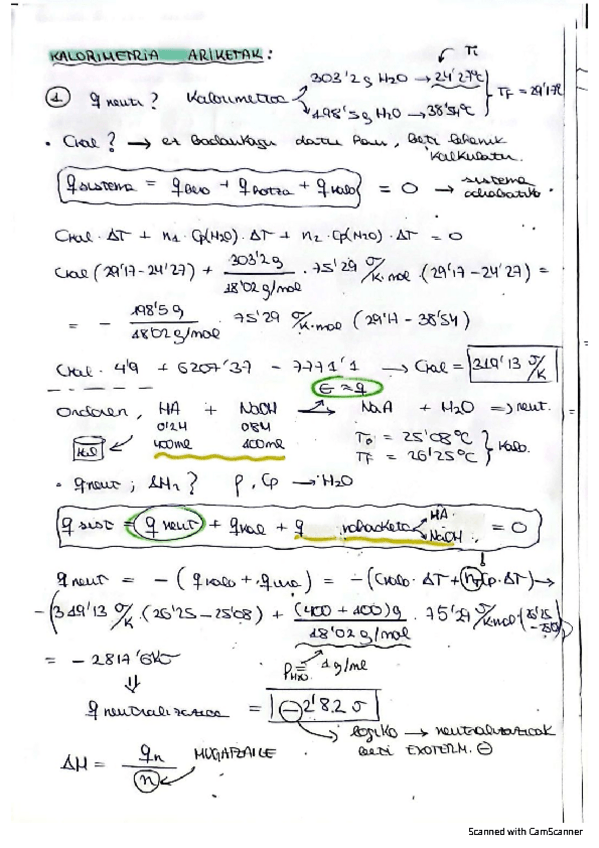 KALORIMETRIA ARIKETAK:
Ti
① q neut? Kalorimetroa 303'2g H2O → 24'27ºC TF = 29'17ºC
198'5g H2O → 38'54ºC
• Ckal? → ez daukagu datu hau, beti lehenik kalkulatu.
q sistema = q bero + q hotza + q kalo = 0 → sistema adiabatiko.
Ckal · ΔT + n1 · Cp(H2O) · ΔT + n2 · Cp(H2O) · ΔT = 0
Ckal (29'17 - 24'27) + 303'2g / 18'02 g/mol · 75'29 J/K·mol · (29'17 - 24'27) =
= - 198'5g / 18'02 g/mol · 75'29 J/K·mol (29'17 - 38'54)
Ckal · 4'9 + 6207'37 - 7771'1 → Ckal = 319'13 J/K
E ≈ q
Ondoren, HA + NaOH → NaA + H2O ⇒ neut.
0'24 0'84
H2O 400ml 400ml
To = 25'08ºC
TF = 26'25ºC } kalo.
• q neut; ΔHn? ρ, Cp → H2O
q sist = q neut + q kal + q nahasketa HA NaOH = 0
q neut = - (q kalo + q ura) = - (Ckalo · ΔT + nT Cp · ΔT) →
- (319'13 J/K · (26'25 - 25'08) + (400 + 400)g / 18'02 g/mol · 75'29 J/K·mol (26'25 - 25'08))
= - 2817'6
ρH2O = 1g/ml
q neutralizazioa = -2'82 J
logiko → neutralizazioak beti EXOTERM. ⊖
ΔH = qn / n MUGATZAILE
Scanned with CamScanner